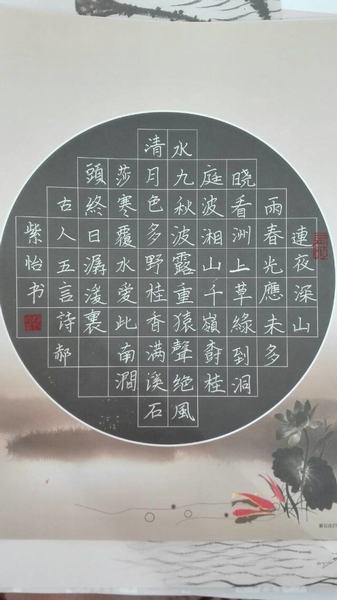 連夜深山
雨春光應未多
曉看洲上草綠到洞
庭波湘山千嶺樹桂
水九秋波露重猿聲绝風
清月色多野桂香满溪石
莎寒覆水爱此南澗
頭終日潺湲裏
古人五言詩郝
紫怡书